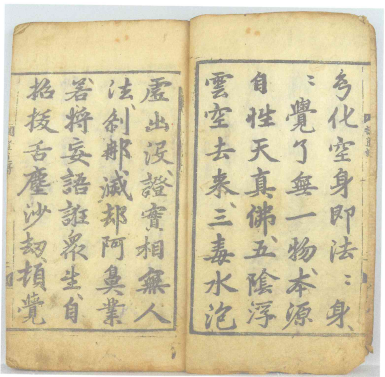 幻化空身即法〻身
〻覺了無一物本源
自性天真佛五陰浮
雲空去來三毒水泡
虛出沒證實相無人
法刹那滅却阿鼻業
若將妄語誑衆生自
招拔舌塵沙劫頓覺